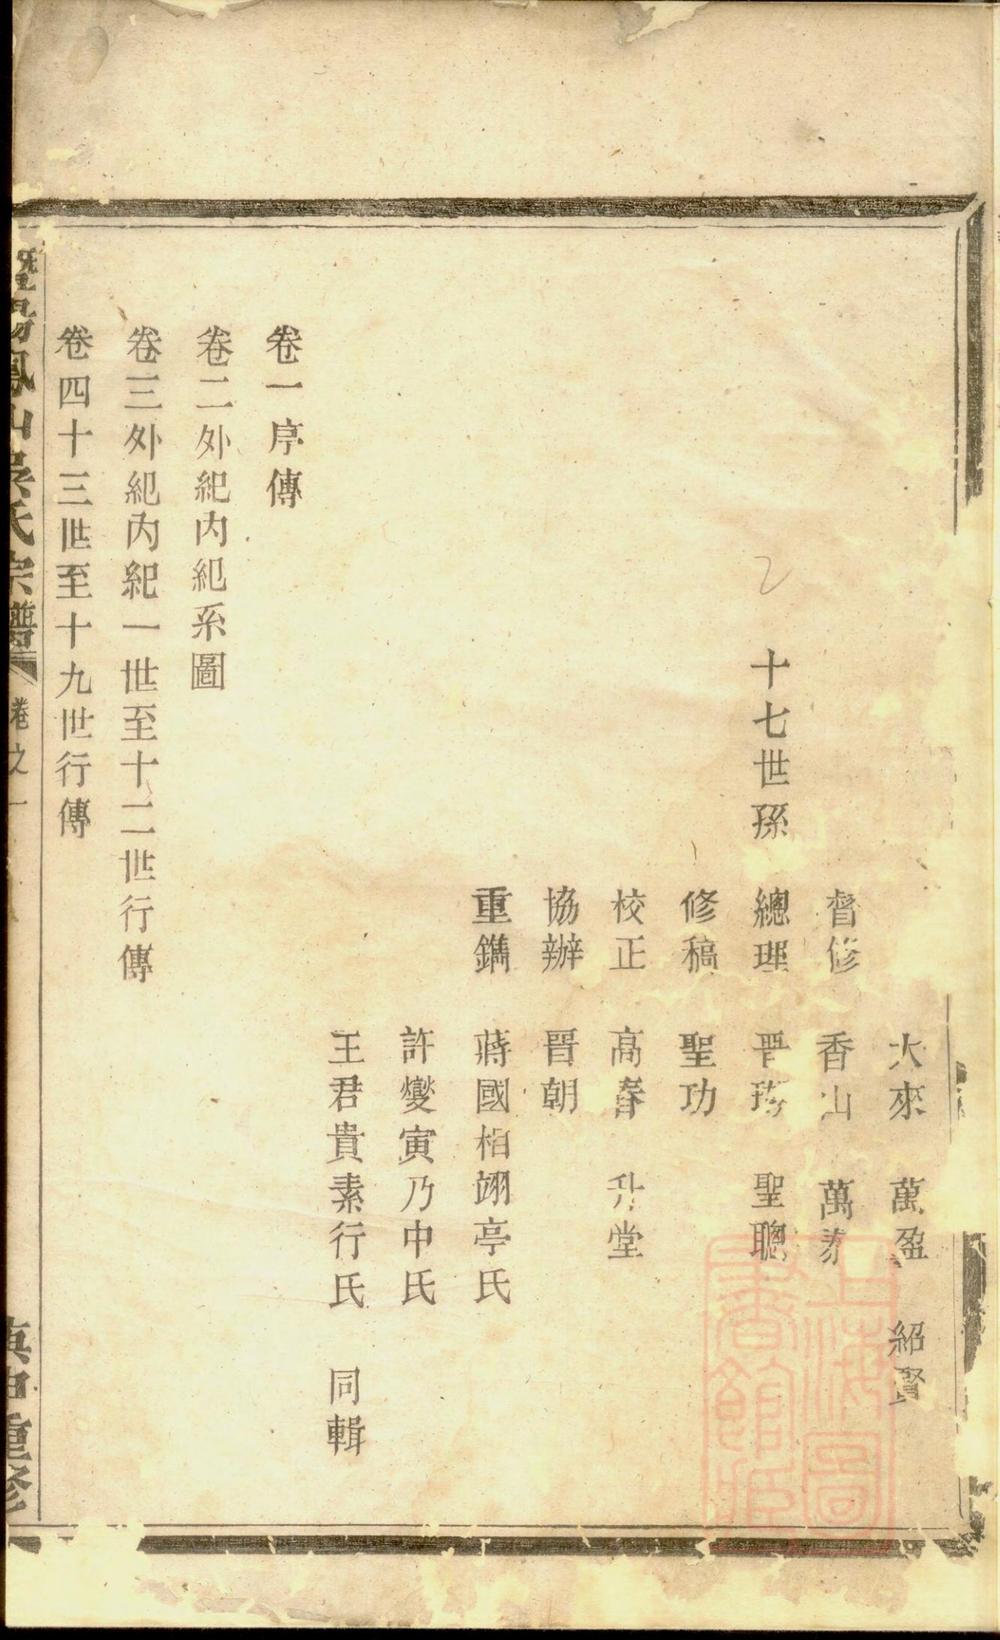 大來　萬盈　紹賢
督修　香山　萬
十七世孫　總理　晋　聖聰
修稿　聖功
校正　高春　升堂
協辦　晉朝
重鐫　蔣國柏翊亭氏
許燮寅乃中氏
王君貴素行氏　同輯
卷一序傳
卷二外紀内紀系圖
卷三外紀内紀一世至十二世行傳
卷四十三世至十九世行傳
暨陽鳳山吳氏宗譜　卷之一　重修
上海圖書館藏